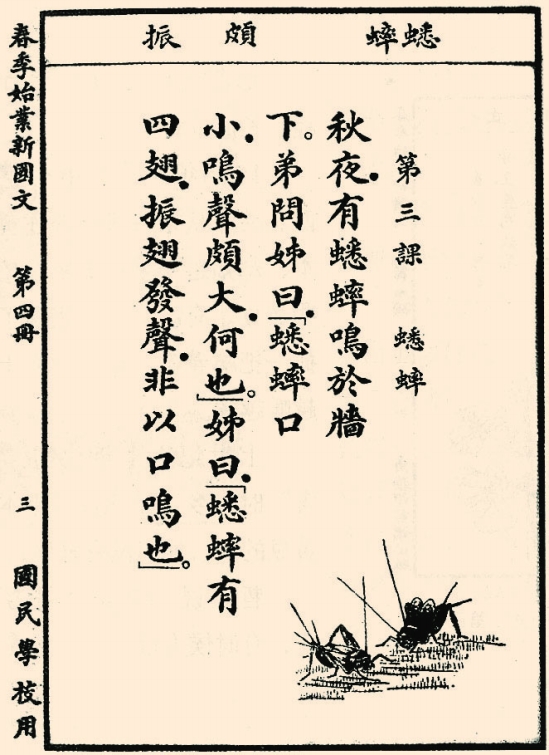 蟋蟀 頗 振
第三課 蟋蟀
秋夜．有蟋蟀鳴於牆
下。弟問姊曰．「蟋蟀口
小．鳴聲頗大．何也」。姊曰．「蟋蟀有
四翅．振翅發聲．非以口鳴也」。
春季始業新國文 第四冊 三 國民學校用